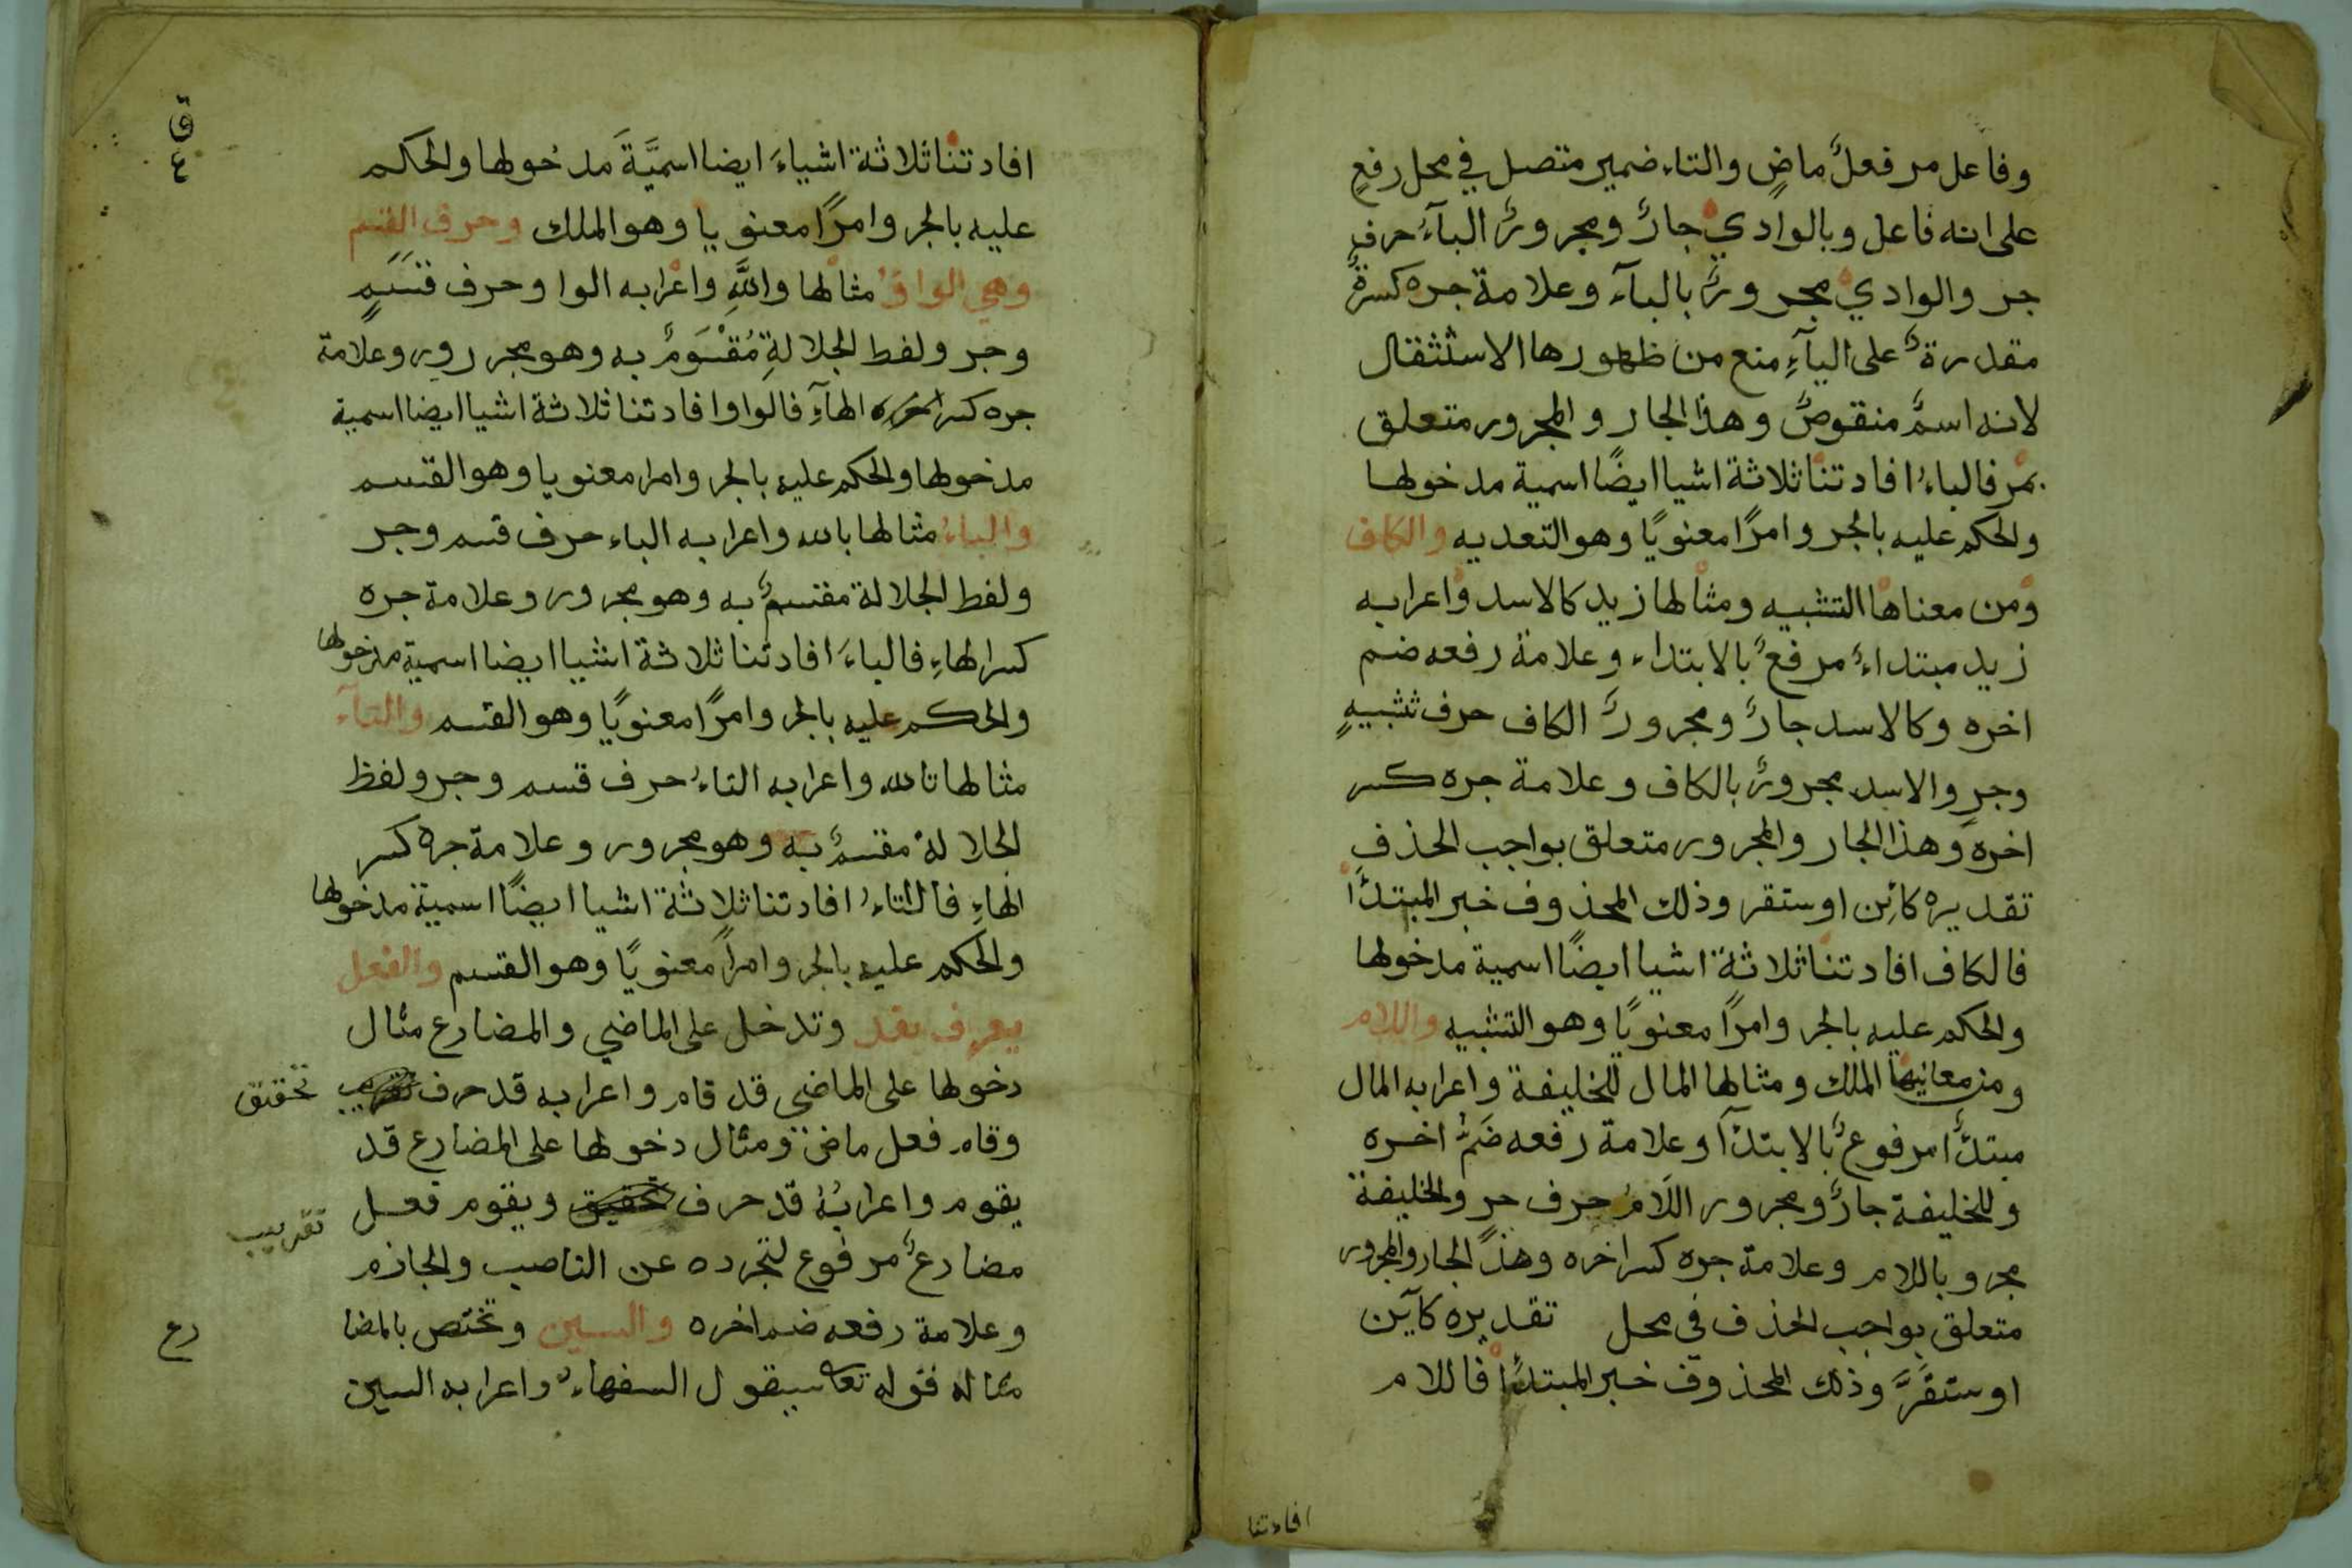 وفاعل مر فعلٌ ماضٍ والتاء ضمير متصل في محل رفعٍ
على انه فاعل وبالوادي جارٌ ومجرورٌ البآءُ حرف
جر والوادي مجرورٌ بالبآء وعلامة جره كسرةٌ
مقدرةٌ على اليآءِ منع من ظهورها الاستثقال
لانه اسمٌ منقوصٌ وهذا الجار والمجرور متعلق
بمر فالباءُ افادتنا ثلاثة اشيا ايضًا اسمية مدخولها
والحكم عليه بالجر وامرًا معنويًا وهو التعديه والكاف
ومن معناها التشبيه ومثالها زيد كالاسد واعرابه
زيد مبتداءٌ مرفعٌ بالابتداء وعلامة رفعه ضم
اخره وكالاسد جارٌ ومجرورٌ الكاف حرف تشبيهٍ
وجرٍ والاسد مجرورٌ بالكاف وعلامة جره كسر
اخره وهذا الجار والمجرور متعلق بواجب الحذفِ
تقديره كائن اوستقر وذلك المحذوف خبر المبتدأ
فالكاف افادتنا ثلاثة اشيا ايضًا اسمية مدخولها
والحكم عليه بالجر وامرًا معنويًا وهو التشبيه واللام
ومن معانيها الملك ومثالها المال للخليفة واعرابه المال
مبتدأٌ مرفوعٌ بالابتدآ وعلامة رفعه ضمُّ اخره
وللخليفة جارٌ ومجرور اللامُ حرف جر والخليفة
مجرو باللام وعلامة جره كسر اخره وهذا الجار والمجرور
متعلق بواجب الحذف في محل تقديره كآين
اوستقرَّ وذلك المحذوف خبر المبتدأ فاللام
افادتنا
افادتنا ثلاثة اشياءَ ايضا اسميَّةَ مدخولها والحكم
عليه بالجر وامرًا معنويا وهو الملك وحرف القسم
وهي الواوُ مثالها واللهِ واعرابه الواو حرف قَسَمٍ
وجر ولفظ الجلالةِ مُقْسَومٌ به وهو مجرور وعلامة
جره كسر اخره الهآءِ فالواو افادتنا ثلاثة اشيا ايضا اسمية
مدخولها والحكم عليه بالجر وامرا معنويا وهو القسم
والباءُ مثالها بالله واعرابه الباء حرف قسم وجر
ولفظ الجلالة مقسمٌ به وهو مجرور وعلامة جره
كسر الهاءِ فالباءَ افادتنا ثلاثة اشيا ايضا اسمية مدخولها
والحكم عليه بالجر وامرًا معنويًا وهو القسم والتآء
مثالها تالله واعرابه التاءُ حرف قسم وجر ولفظ
الجلالة مقسمٌ به وهو مجرور وعلامة جره كسر
الهاءِ فالتاءُ افادتنا ثلاثة اشيا ايضًا اسمية مدخولها
والحكم عليه بالجر وامراً معنويًا وهو القسم والفعل
يعرف بقد وتدخل على الماضي والمضارع مثال
دخولها على الماضي قد قام واعرابه قد حرف تقريب تحقيق
وقام فعل ماض ومثال دخولها على المضارع قد
يقوم واعرابُهُ قد حرف تحقيق ويقوم فعل تقريب
مضارعٌ مرفوع لتجرده عن الناصب والجازم
وعلامة رفعه ضم اخره والسين وتختص بالمضا رع
مثاله قوله تعا سيقول السفهاءُ واعرابه السين